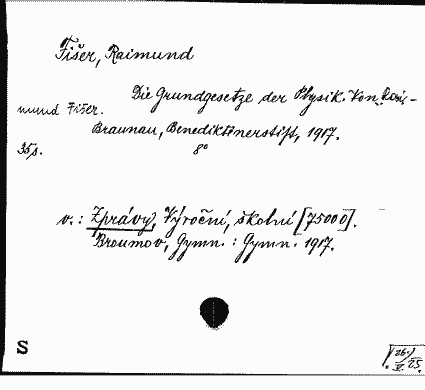 Fišer, Raimund
Die Grundgesetze der Physik. Von Rai-
mund Fišer.
Braunau, Benediktinerstift, 1917.
35s. 8°
v.: Zprávy, Výroční, školní [75000].
Broumov, Gymn.: Gymn. 1917.
S
26/V.25.